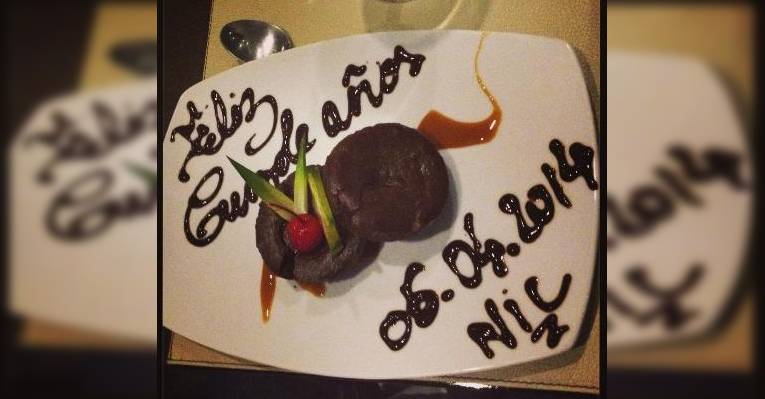 Feliz
Cumple años
06.04.2014
Nic